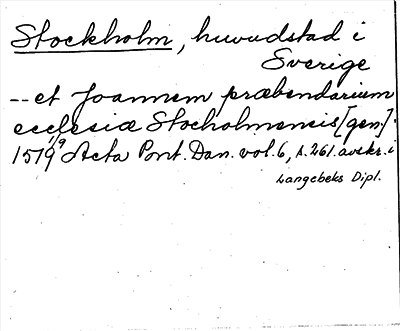 Stockholm, huvudstad i
Sverige
-- et Joannem præbendarium
ecclesiæ Stocholmensis [gen.]
15 19/9 Acta Pont. Dan. vol. 6, s. 261. avskr. i
Langebeks Dipl.